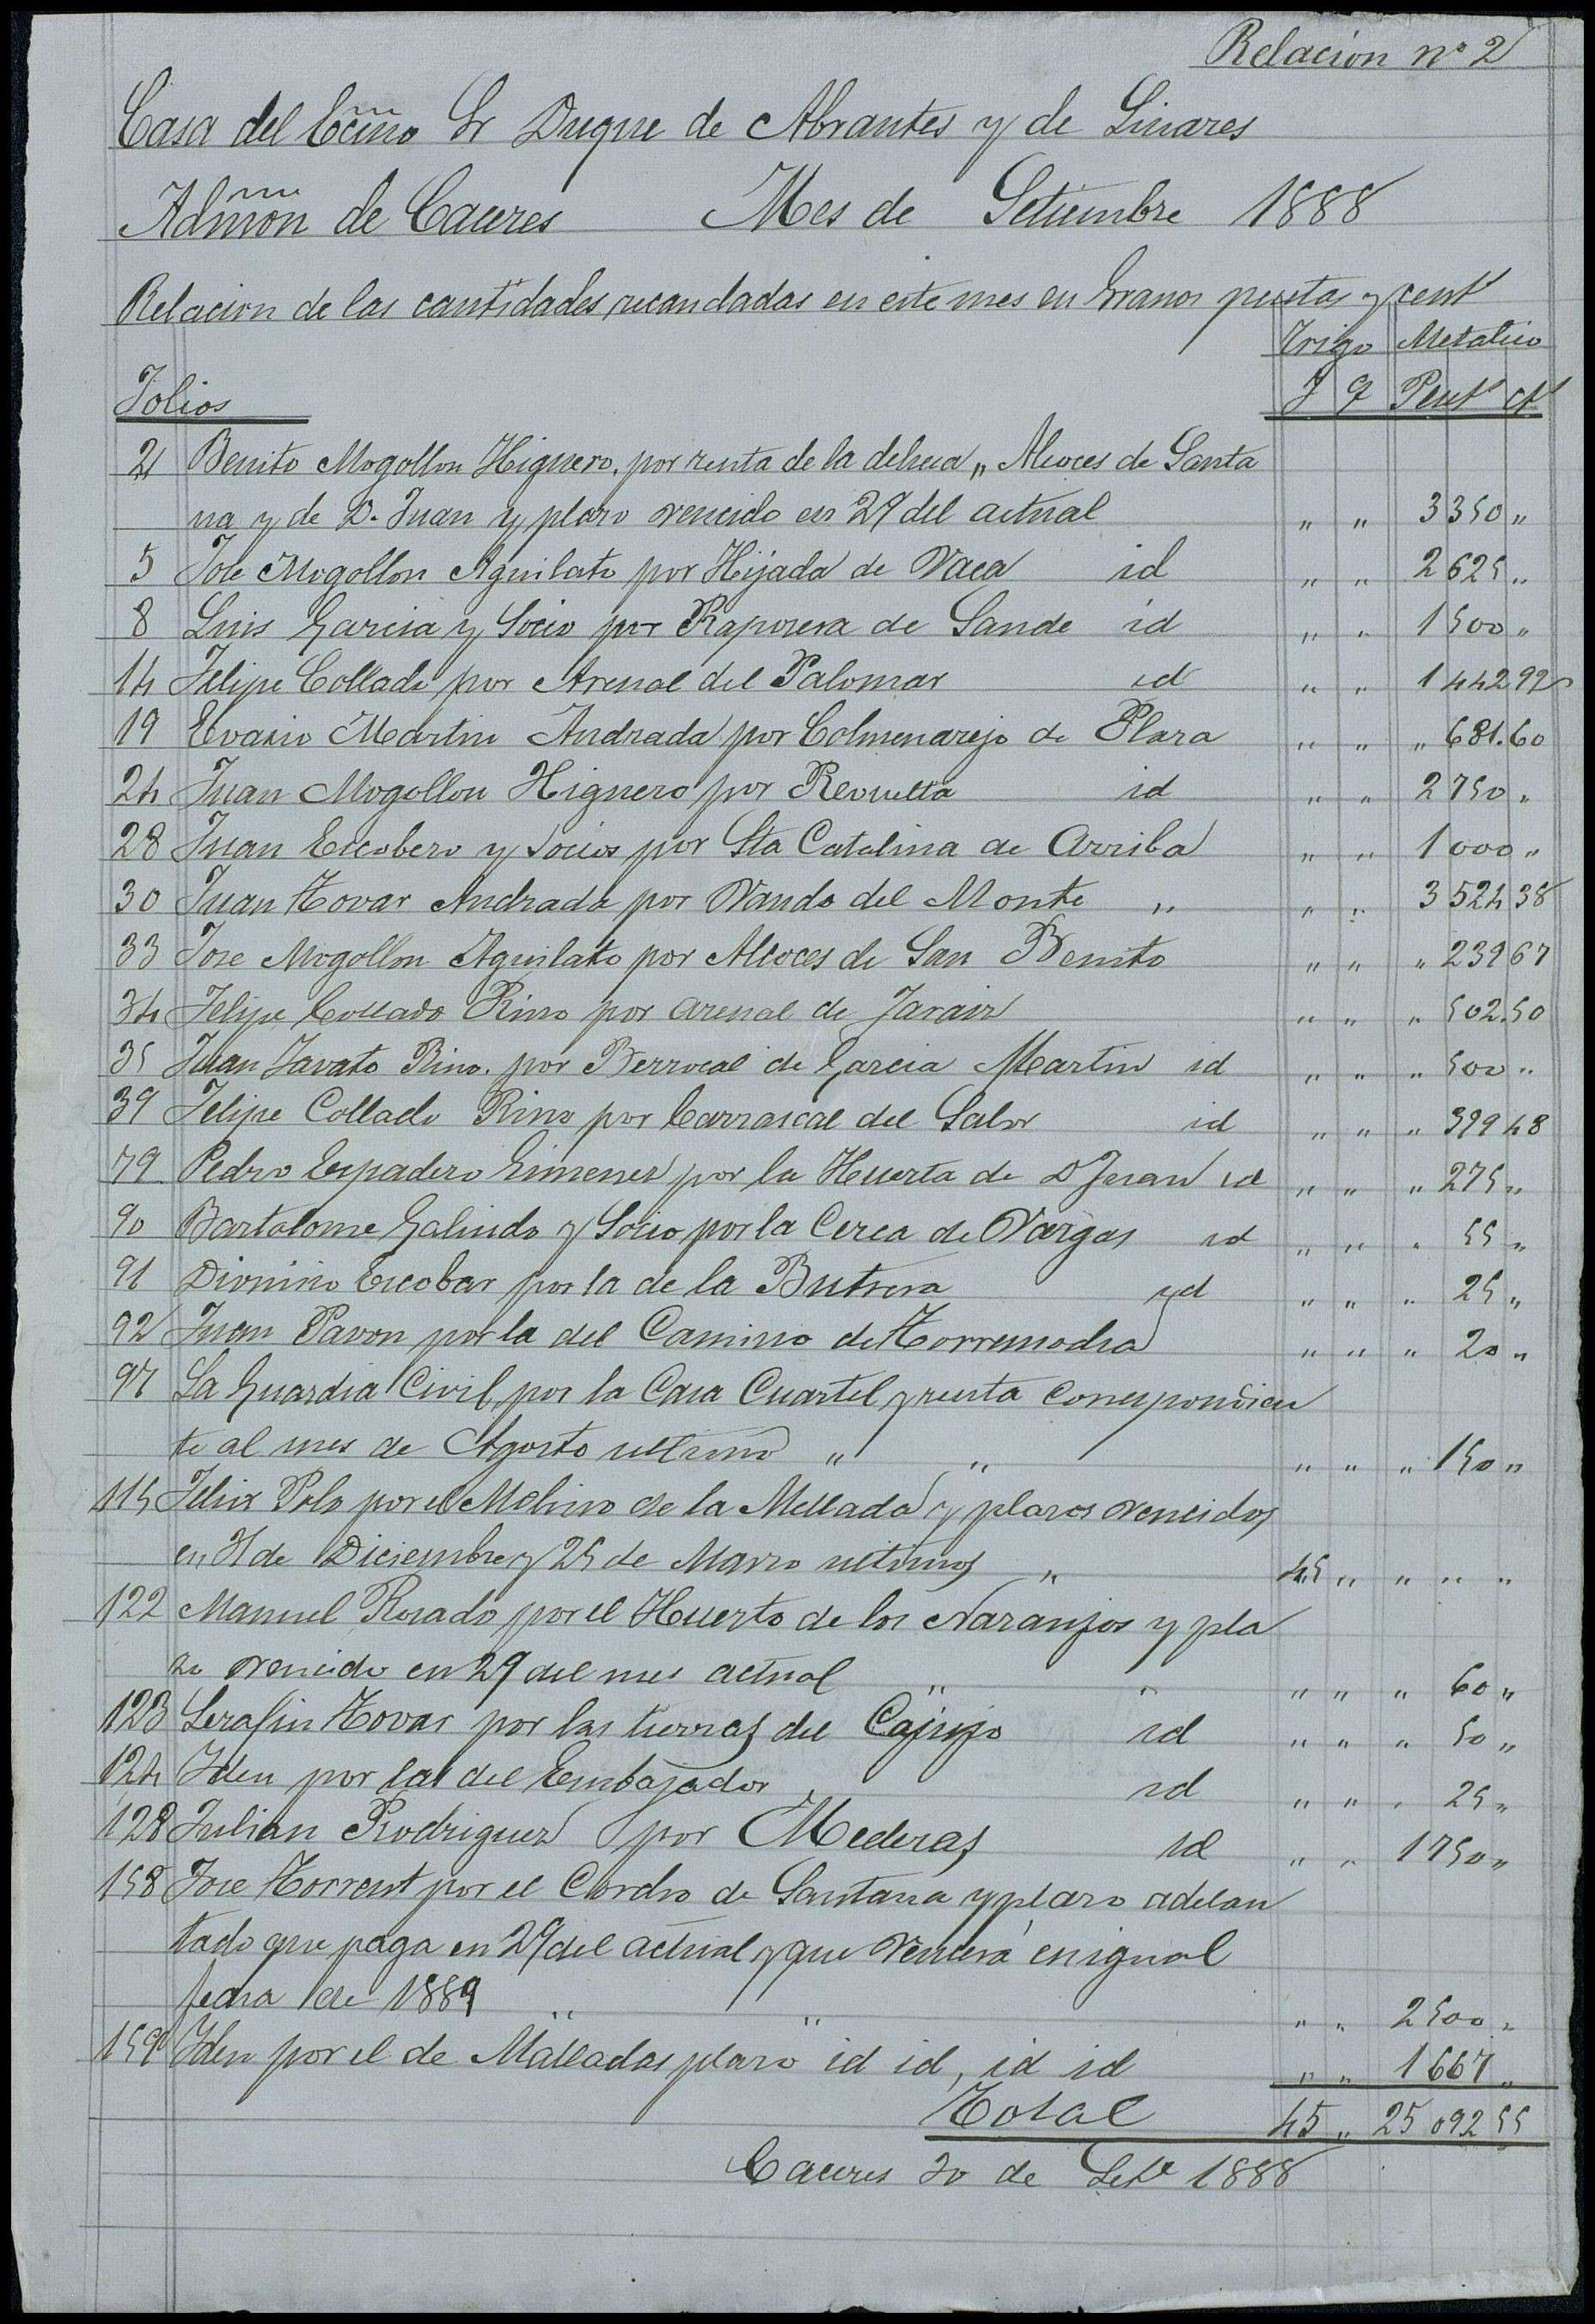 Relacion nº 2
Casa del Ecmo Sr Duque de Abrantes y de Linares
Admon de Caceres Mes de Setiembre 1888
Relacion de las cantidades recaudadas en este mes en Granos pesetas y cent
Trigo Metalico
Folios F q Peset ct
2 Benito Mogollon Higuero, por renta de la dehesa „ Alcoces de Santa
na y de D. Juan y plazo vencido en 29 del actual „ „ 3350 „
5 Jose Mogollon Aguilato por Hijada de Vaca id „ „ 2625 „
8 Luis Garcia y Socio por Raposera de Sande id „ „ 1500 „
14 Felipe Collado por Arenal del Palomar id „ „ 1442 92
19 Evario Martin Andrada por Colmenarejo de Plaza „ „ „ 681.60
24 Juan Mogollon Higuero por Revuelta id „ „ 2750 „
28 Juan Escobero y Socios por Sta Catalina de Arriba „ „ 1000 „
30 Juan Tovar Andrada por Vando del Monte „ „ „ 3524 38
33 Jose Mogollon Aguilato por Alcoces de San Benito „ „ „ 239 67
34 Felipe Collado Rino por Arenal de Jaraiz „ „ „ 502.50
35 Juan Javato Rino. por Berrocal de Garcia Martin id „ „ „ 500 „
39 Felipe Collado Rino por Carrascal del Salor id „ „ „ 399 48
79 Pedro Espadero Gimenez por la Huerta de D Juan id „ „ „ 275 „
90 Bartolome Galindo y Socio por la Cerca de Vargas id „ „ „ 55 „
91 Dionisio Escobar por la de la Butrera id „ „ „ 25 „
92 Juan Pavon por la del Camino de Torremocha „ „ „ 20 „
97 La Guardia Civil, por la Casa Cuartel y renta correspondien
te al mes de Agosto ultimo „ „ „ „ „ 150 „
115 Felix Polo por el Molino de la Mellada y plazos vencidos
en 31 de Diciembre y 25 de Marzo ultimos „ 45 „ „ „ „
122 Manuel Rosado por el Huerto de los Naranjos y pla
zo vencido en 29 del mes actual „ „ „ „ „ 60 „
123 Serafin Tovar por las tierras del id „ „ „ 50 „
124 Iden por las del Embajador id „ „ „ 25 „
128 Julian Rodriguez por Mederas id „ „ 1750 „
158 Jose Torrent por el Corcho de Santana y plazo adelan
tado que paga en 29 del actual y que vencerá en igual
fecha de 1889 „ „ „ „ 2500 „
159 Iden por el de Malladas plazo id id, id id „ „ 1667 „
Total 45 „ 25 092 55
Caceres 30 de Sete 1888